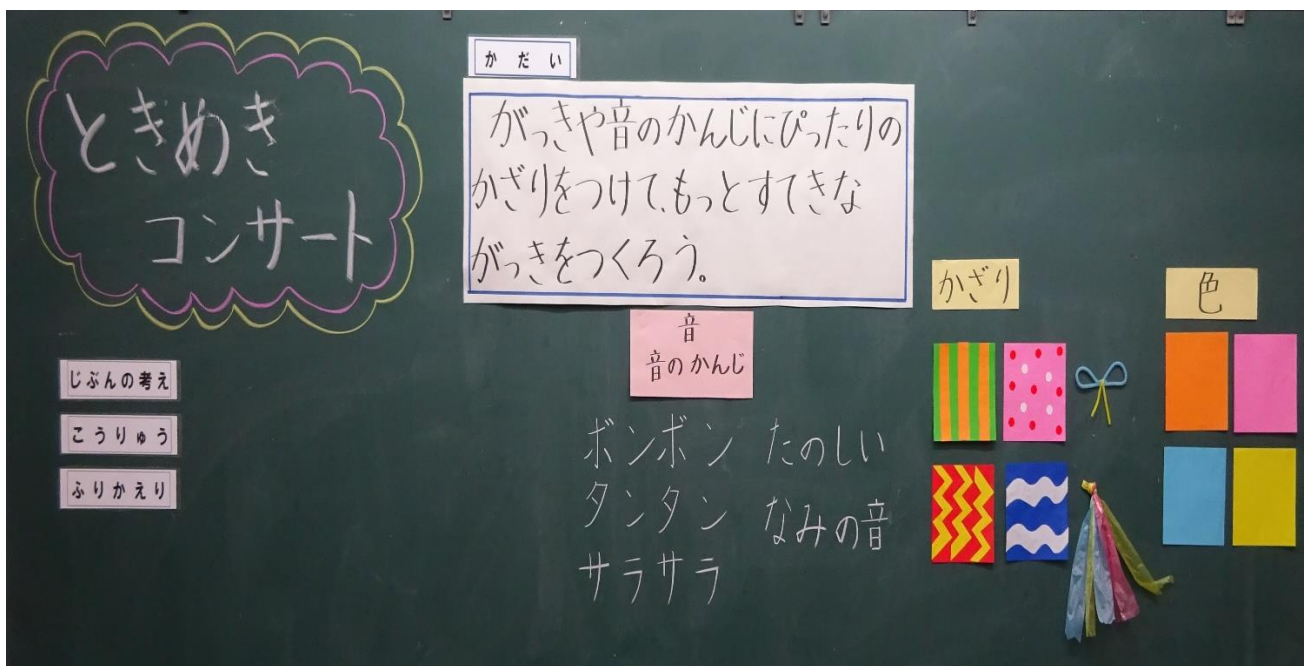 ときめき
コンサート
じぶんの考え
こうりゅう
ふりかえり
かだい
がっきや音のかんじにぴったりの
かざりをつけて、もっとすてきな
がっきをつくろう。
音
音のかんじ
ボンボン たのしい
タンタン なみの音
サラサラ
かざり
色